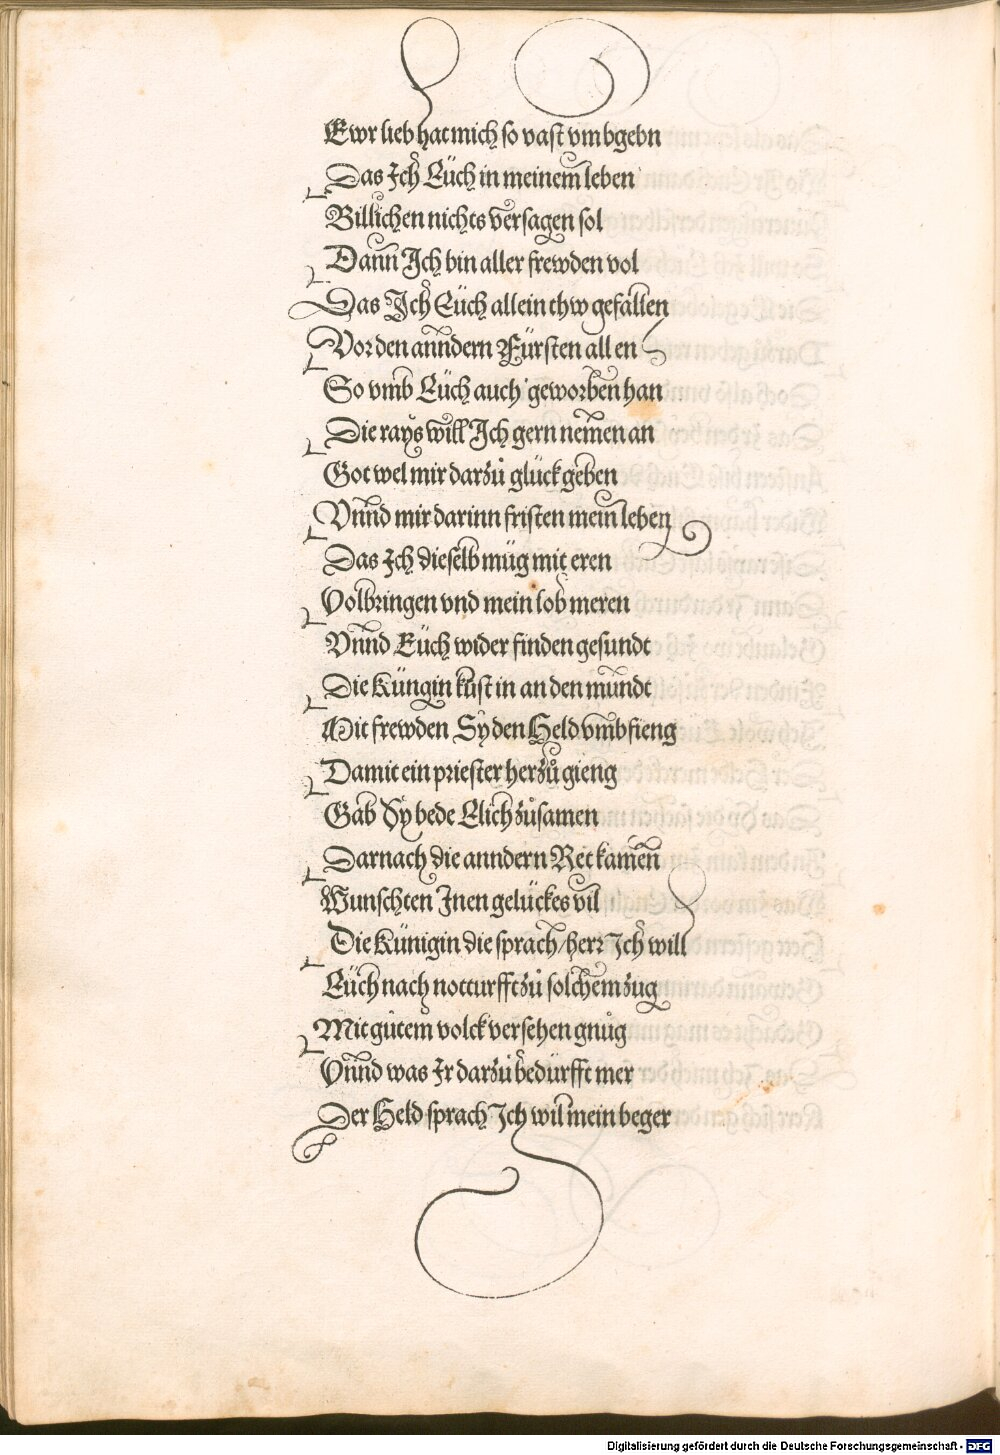 Ewr lieb hat mich so vast vmbgebn
Das Ich Euch in meinem leben
Billichen nichts versagen sol
Dann Ich bin aller frewden vol
Das Ich Eüch allein thw gefallen
Vor den anndern Fürsten allen
So vmb Eüch auch geworben han
Die rays will Ich gern nemen an
Got wel mir darzů glück geben
Vnnd mir darinn fristen mein leben
Das Ich dieselb müg mit eren
Volbringen vnd mein lob meren
Vnnd Eüch wider finden gesundt
Die Küngin kust in an den mundt
Mit frewden Sy den Held vmbfieng
Damit ein priester herzů gieng
Gab Sy bede Elich zůsamen
Darnach die anndern Ret kamen
Wunschten Inen gelückes vil
Die Künigin die sprach/herr Ich will
Eüch nach notturfft zů solchem zug
Mit gůtem volck versehen gnůg
Vnnd was Ir darzů bedürfft mer
Der Held sprach Ich wil mein beger
Digitalisierung gefördert durch die Deutsche Forschungsgemeinschaft - DFG